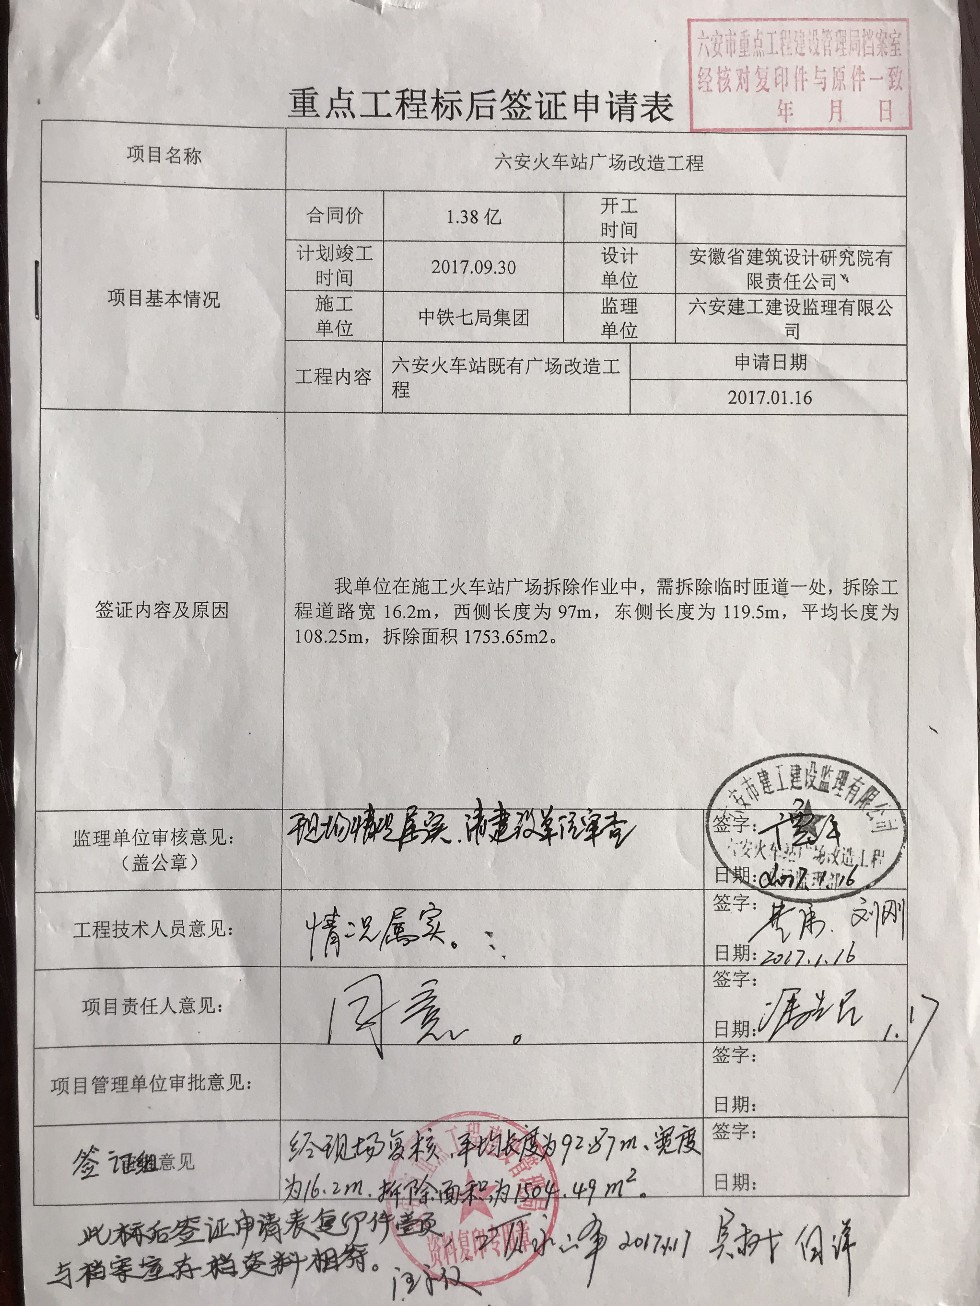 六安市重点工程建设管理局档案室
经核对复印件与原件一致
年 月 日
重点工程标后签证申请表
项目名称
六安火车站广场改造工程
项目基本情况
合同价
1.38 亿
开工
时间
计划竣工
时间
2017.09.30
设计
单位
安徽省建筑设计研究院有
限责任公司
施工
单位
中铁七局集团
监理
单位
六安建工建设监理有限公
司
工程内容
六安火车站既有广场改造工
程
申请日期
2017.01.16
签证内容及原因
我单位在施工火车站广场拆除作业中，需拆除临时匝道一处，拆除工
程道路宽 16.2m，西侧长度为 97m，东侧长度为 119.5m，平均长度为
108.25m，拆除面积 1753.65m2。
监理单位审核意见:
（盖公章）
现场情况属实，请建设单位审查
签字:
日期: 2017.1.16
六安市建工建设监理有限公司
六安火车站广场改造工程
监理部
工程技术人员意见:
情况属实。
签字: 刘刚
日期: 2017.1.16
项目责任人意见:
同意。
签字:
日期: 1.17
项目管理单位审批意见:
签字:
日期:
签证组意见
经现场复核，平均长度为92.87m、宽度
为16.2m，拆除面积为1504.49m²。
签字:
日期:
资料复印专用章
此标后签证申请表复印件
与档案室存档资料相符。
2017.1.17